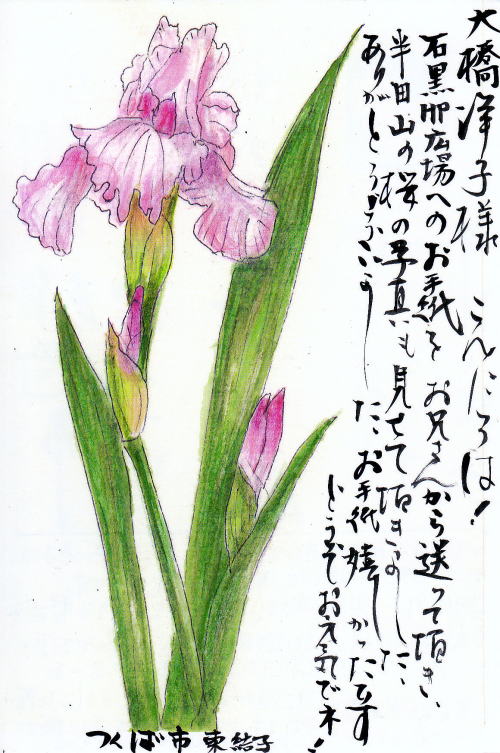 大橋洋子様 こんにちは!
石黒邸広場へのお手紙をお兄さんから送って頂き、
半田山の桜の写真も見せて頂きました、
ありがとうございました、お手紙嬉しかったです
どうぞお元気でネ!
つくば市 東 結子